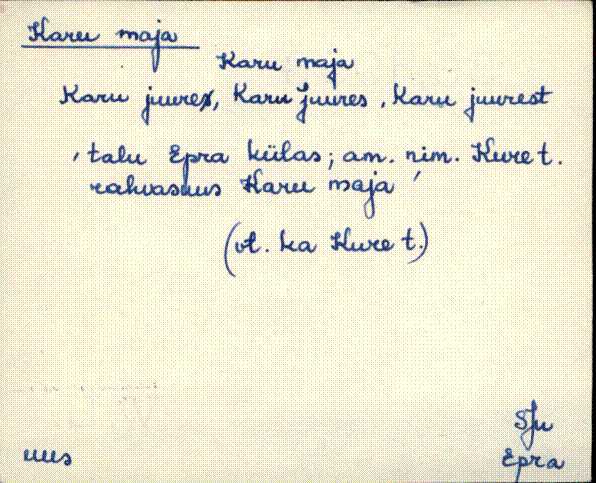 Karu maja
Karu maja
Karu juures, Karu juures, Karu juurest
' talu Epra külas; am. nim. Kure t.
rahvasuus Karu maja '
(vt. ka Kure t.)
SJu
uus Epra